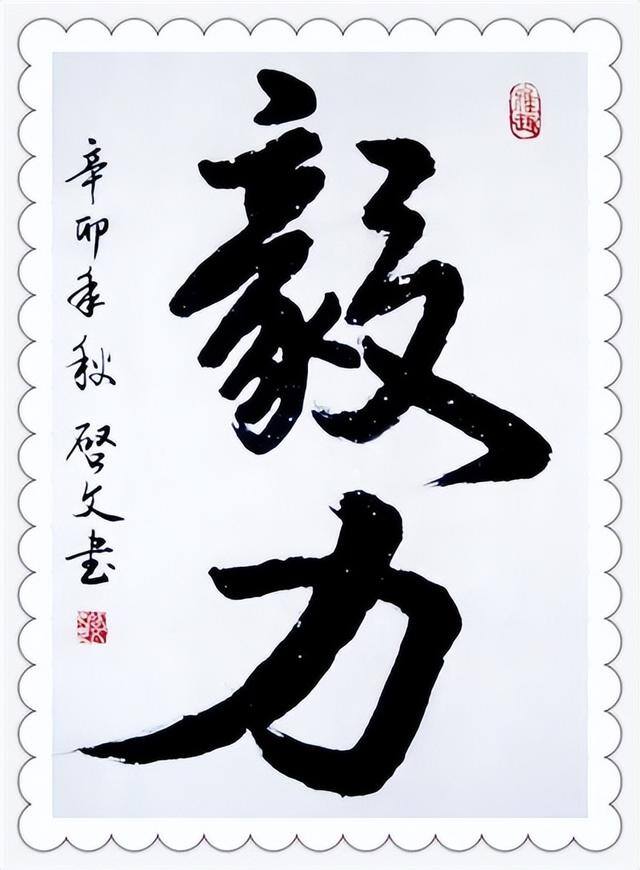 毅力
辛卯年秋 启文书